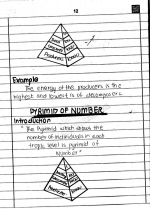 12
Example
The energy of the producers is the
highest and lowest is of decomposers
PYRIMID OF NUMBER
Introduction
"The Pyramid which shows the
number of individuals in each
tropic level is pyramid of
Number"